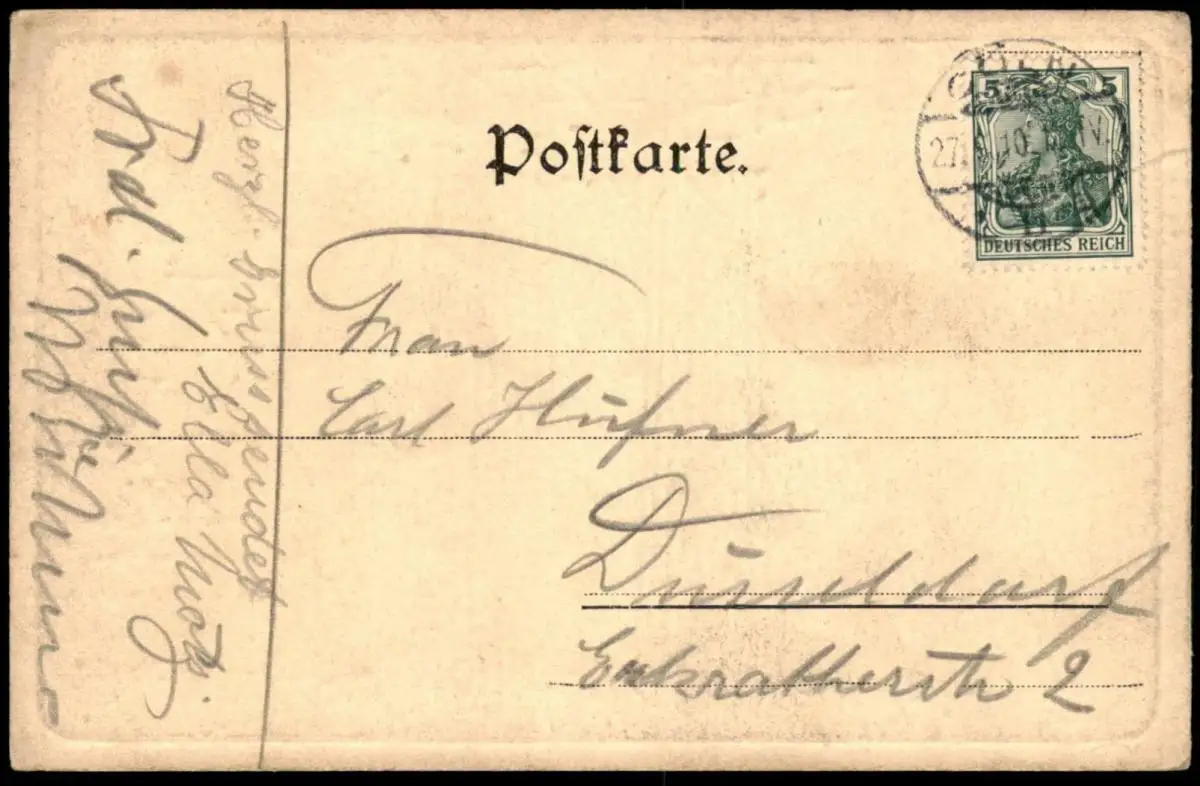 Postkarte.
5 5
DEUTSCHES REICH
Frau
Carl Hüfner
Düsseldorf
Erkratherstr 2
Herzl. Gruss sendet
Ella
Frdl. Gruß